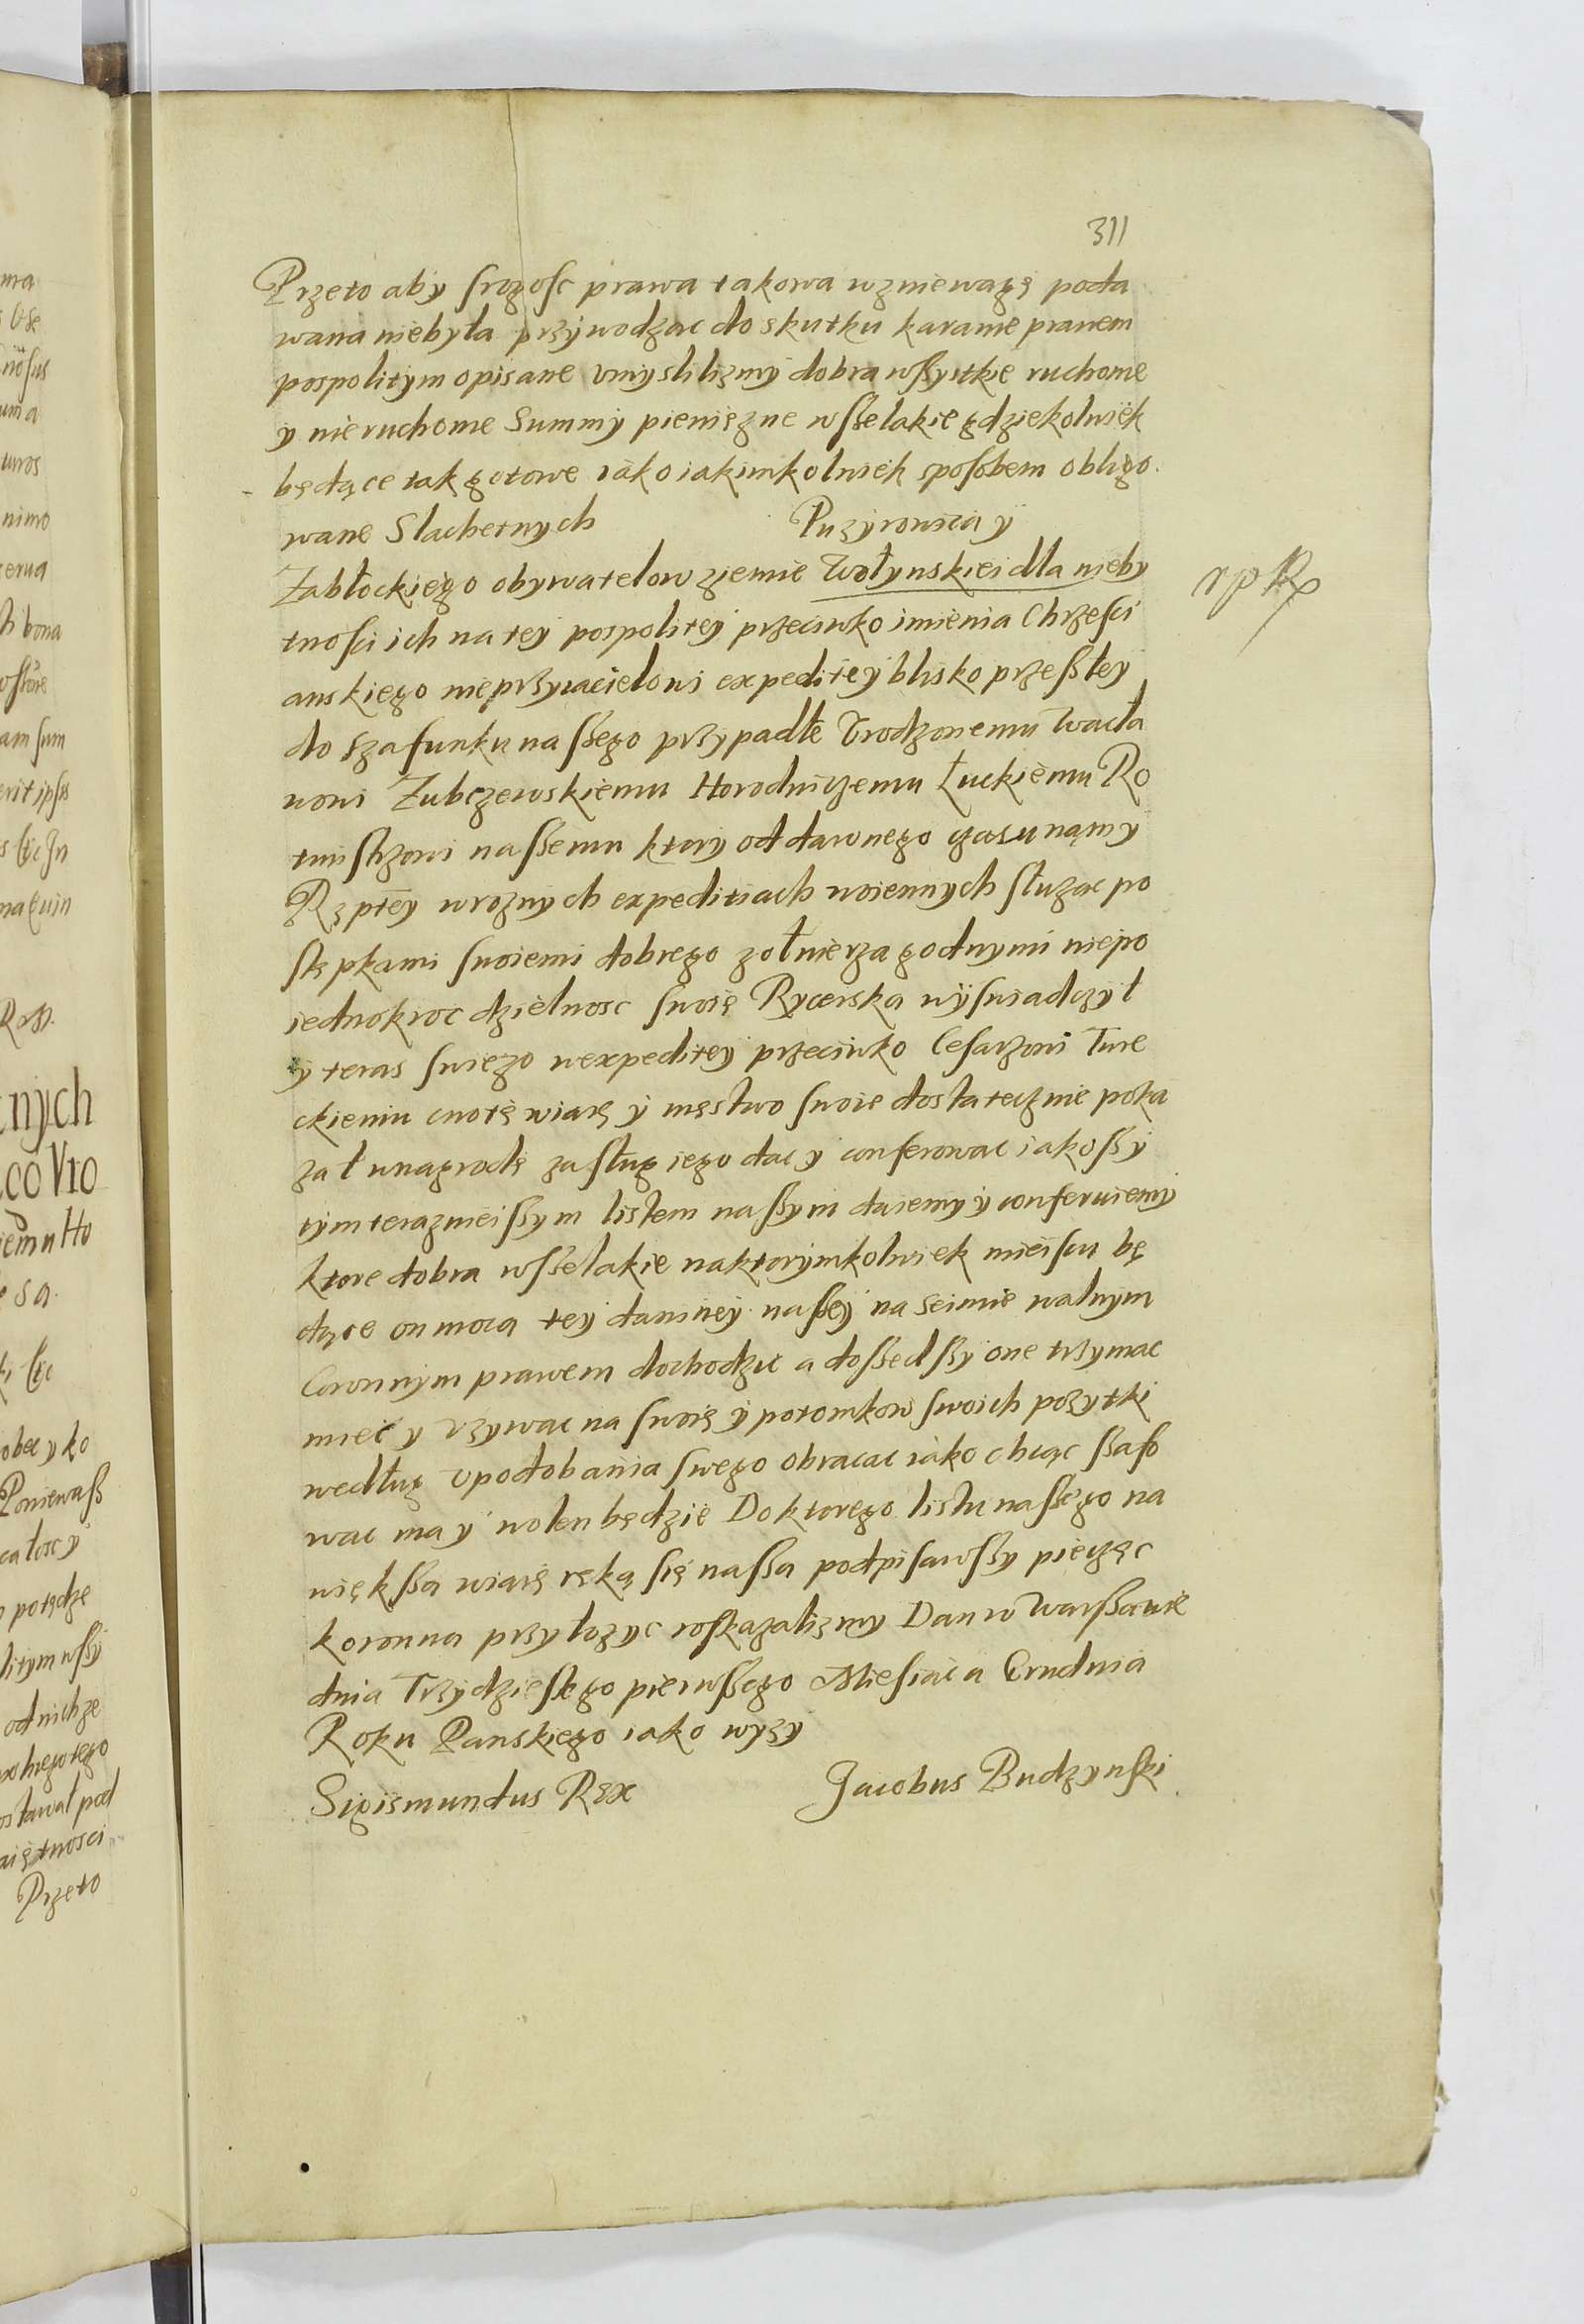 311
Przeto aby srogosc prawa takowa wzniewagę poda
wana niebyła przywodząc do skutku karanie prawem
pospolitym opisane vmyslilizmy dobra wszystkie ruchome
y nieruchome Summy pieniężne wszelakie gdziekolwiek
będące tak gotowe iako iakimkolwiek sposobem obligo
wane Slachetnych Puzyrowica y
Zabłockiego obywatelow ziemie Wołynskiei dla nieby
tnosci ich na tey pospolitey przeciwko imienia Chrzesci
anskiego nieprzyiacielowi expeditiey blisko przeszłey
do szafunku naszego przypadłe Vrodzonemu Wacła
wowi Zubczewskiemu Horodniczemu Łuckiemu Ro
tmistrzowi naszemu ktory od dawnego czasu nąm y
Rzptey wroznych expeditiach woiennych służąc po
stępkami swoiemi dobrego zołnierza godnymi niepo
iednokroc dzielnosc swoię Rycerską wyswiadczył
y teras swiezo wexpeditey przeciwko Cesarzowi Ture
ckiemu cnotę wiarę y męstwo swoie dostatecznie poka
zał wnagrodę zasług iego dac y conferowac iakoszy
tym terazneiszym listem naszym daiemy y conferuiemy
ktore dobra wszelakie naktorymkolwiek mieiscu bę
dące on mocą tey daniney naszey na seimie walnym
Coronnym prawem dochodzic a doszedszy one trzymac
miec y vzywac na swoię y potomkow swoich pozytki
według vpodobania swego obracac iako chcąc szafo
wac ma y wolen będzie Do ktorego listu naszego na
większa wiarę ręką się naszą podpisawszy pieczęc
koronna przyłozyc roskazalizmy Dan w Warszawie
dnia Trzydziestego pierwszego Miesiaca Grudnia
Roku Panskiego iako wyzy
Sigismundus Rex Jacobus Budzynski